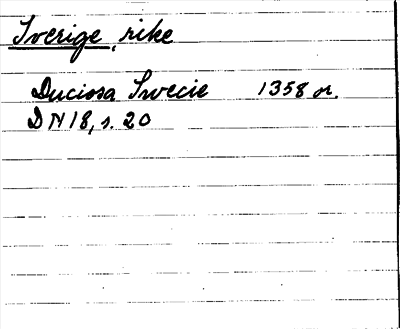 Sverige, rike
Duciosa Swecie 1358 or.
DN 18, s. 20